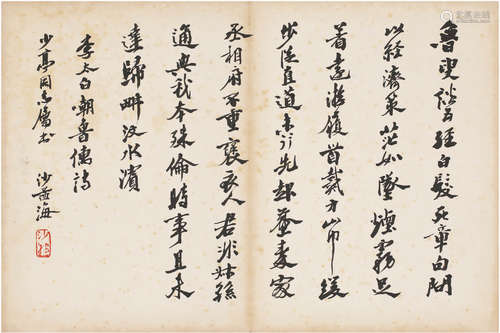 魯叟談五經白髮死章句問
以經濟策茫如墜煙霧足
着遠游履首戴方山巾緩
步從直道未行先起塵秦家
丞相府不重褒衣人君非叔孫
通與我本殊倫時事且未
達歸耕汶水濱
李太白嘲魯儒詩
少亭同志屬书 沙孟海